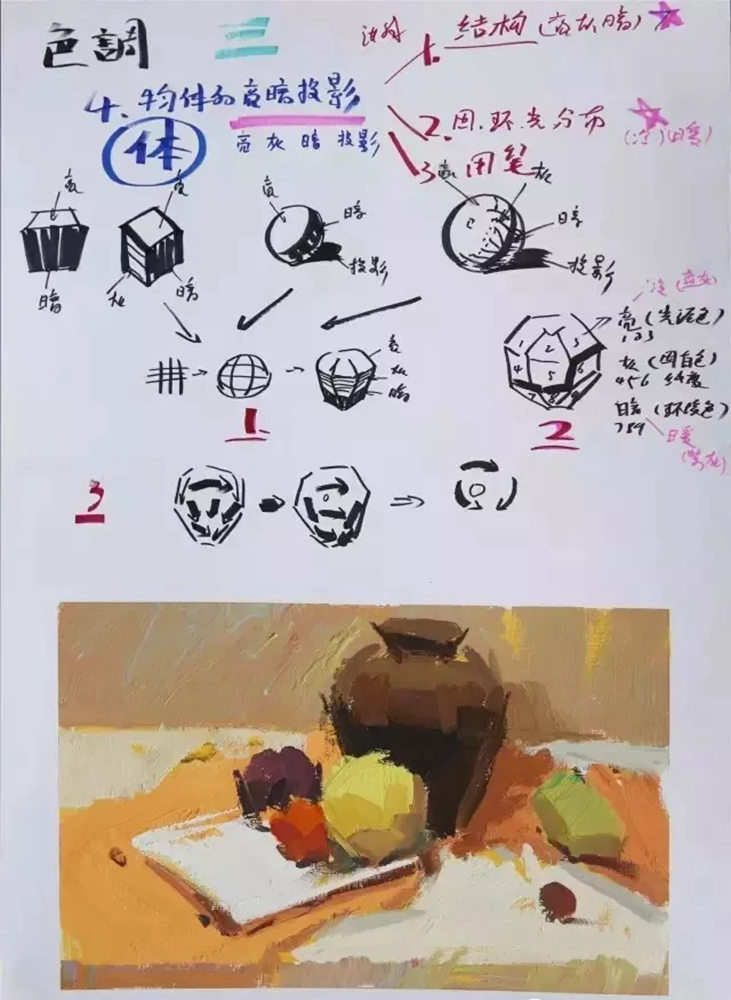 色調 三
1. 结构（亮灰暗）
4. 物体的亮暗投影
体
亮 灰 暗 投影
2. 固.环.光分布
（冷）（暖）
3. 用笔
亮
暗
亮
灰
暗
亮
暗
投影
亮
灰
暗
投影
亮
灰
暗
1
1 2 3
4 5 6
7 8 9
冷（蓝灰）
亮（光源色）
123
灰（固有色）
456 纯度
暗（环境色）
789
暖
（紫灰）
2
3